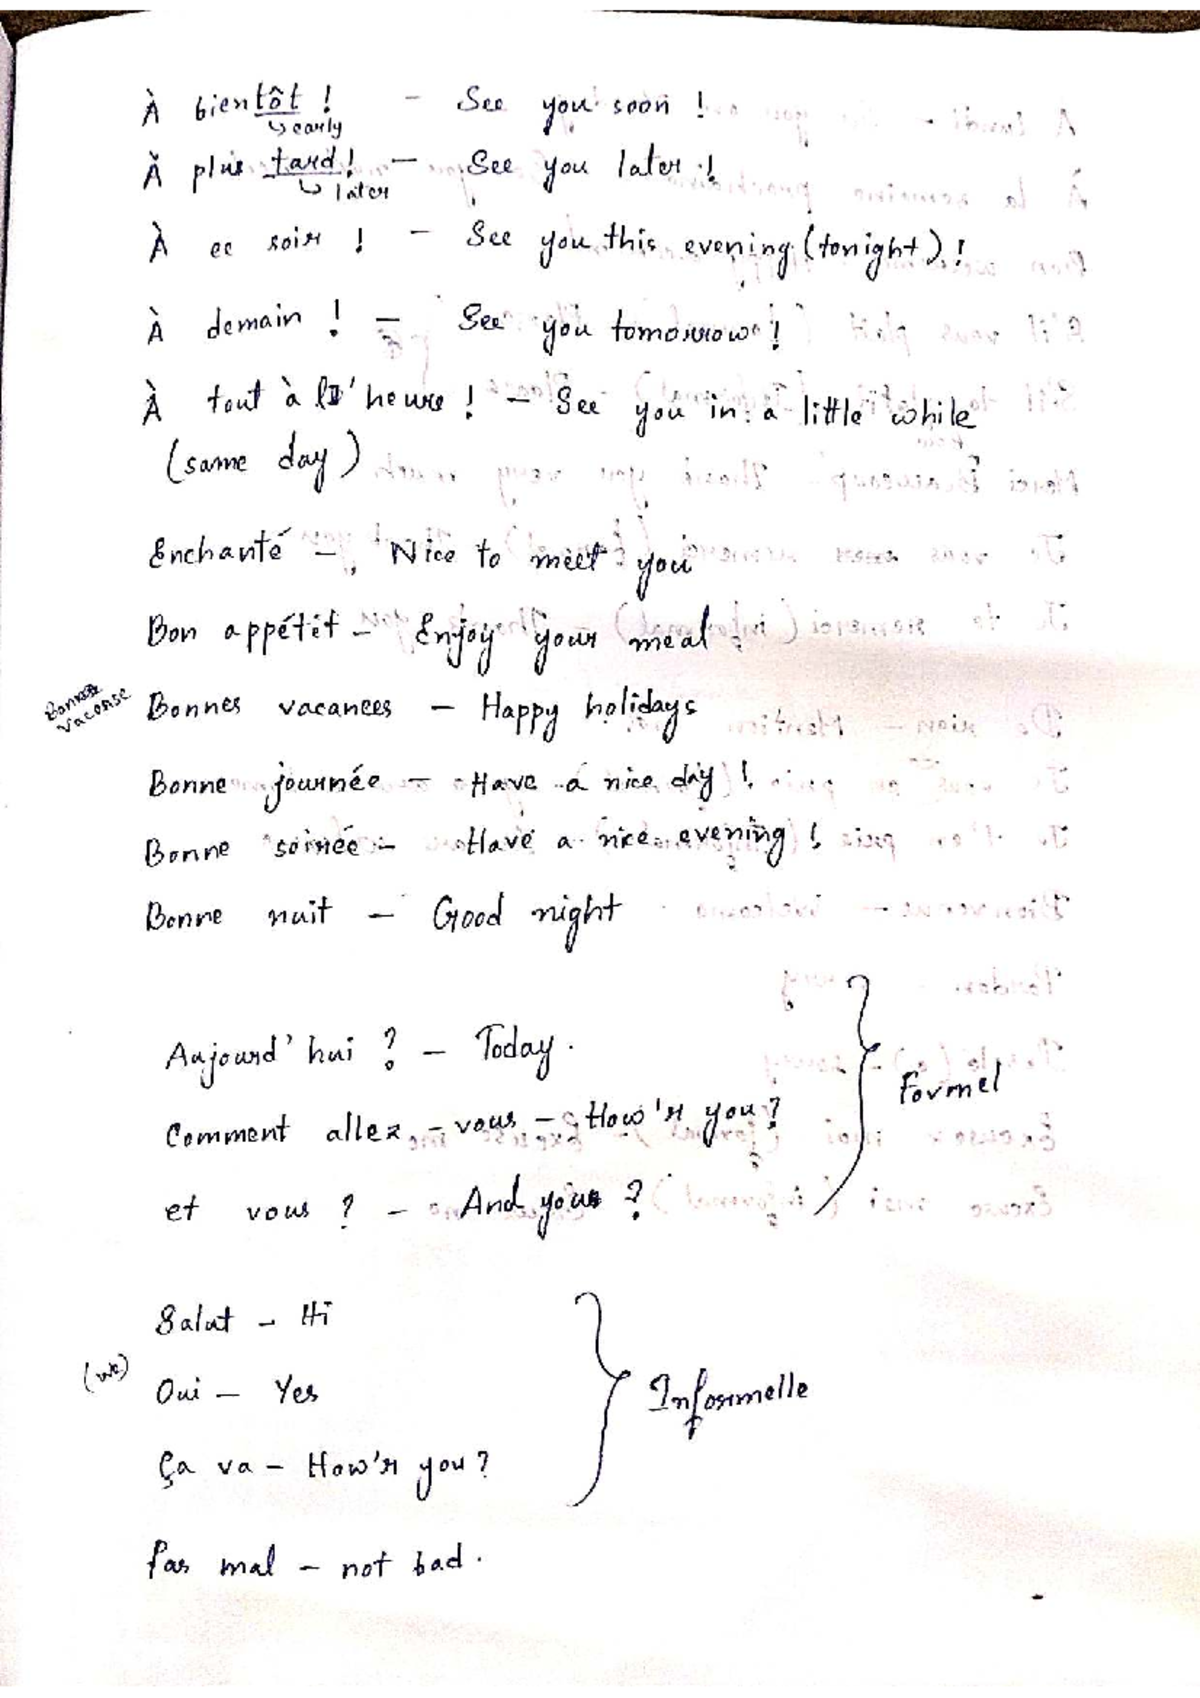 À bientôt ! - See you soon !
↳ early
À plus tard ! - See you later !
↳ later
À ce soir ! - See you this evening (tonight) !
À demain ! - See you tomorrow !
À tout à l'heure ! - See you in a little while
(same day)
Enchanté - Nice to meet you
Bon appétit - Enjoy your meal
Bonnes vacances - Happy holidays
Bonne journée - Have a nice day !
Bonne soirée - Have a nice evening !
Bonne nuit - Good night
Aujourd'hui ? - Today.
Comment allez - vous - How'r you ?
Formel
et vous ? - And you ?
Salut - Hi
Oui - Yes
Informelle
Ça va - How'r you ?
Pas mal - not bad.